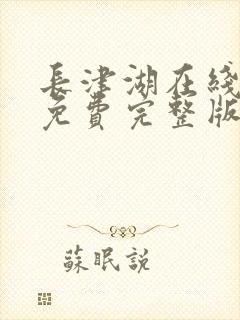 長津湖在綫
免費完整版
蘇眠說